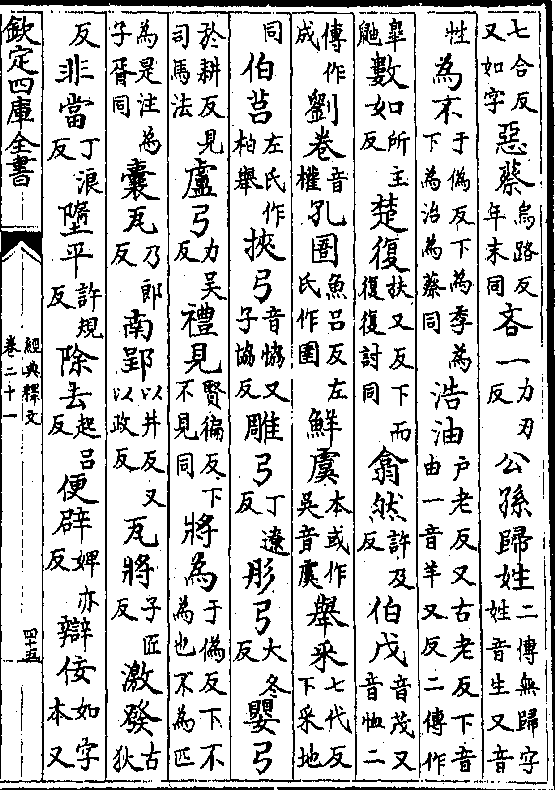 七合反又如字惡蔡烏路反年末同吝一力刃反公孫歸姓二傳無歸字姓音生又音
性為不于偽反下為季為下為治為蔡同浩油户老反又古老反下音由一音羊又反二傳作
臯鼬數如所主反楚復扶又反下而復復討同翕然許及反伯戊音茂又音恤二
傳作成劉卷音權孔圄魚吕反左氏作圉鮮虞本或作吳音虞舉采七代反下采地
同伯莒左氏作柏舉挾弓音恊又子協反雕弓丁遼反彤弓大冬反嬰弓
於耕反見司馬法盧弓力吳反禮見賢徧反下不見同將為于偽反下不為也不為匹
為是注為子胥同囊瓦乃郎反南郢以井反又以政反瓦將子匠反激發古狄
反非當丁浪反墮平許規反除去起吕反便辟婢亦反辯佞如字本又
欽定四庫全書
經典釋文
卷二十一
四十五